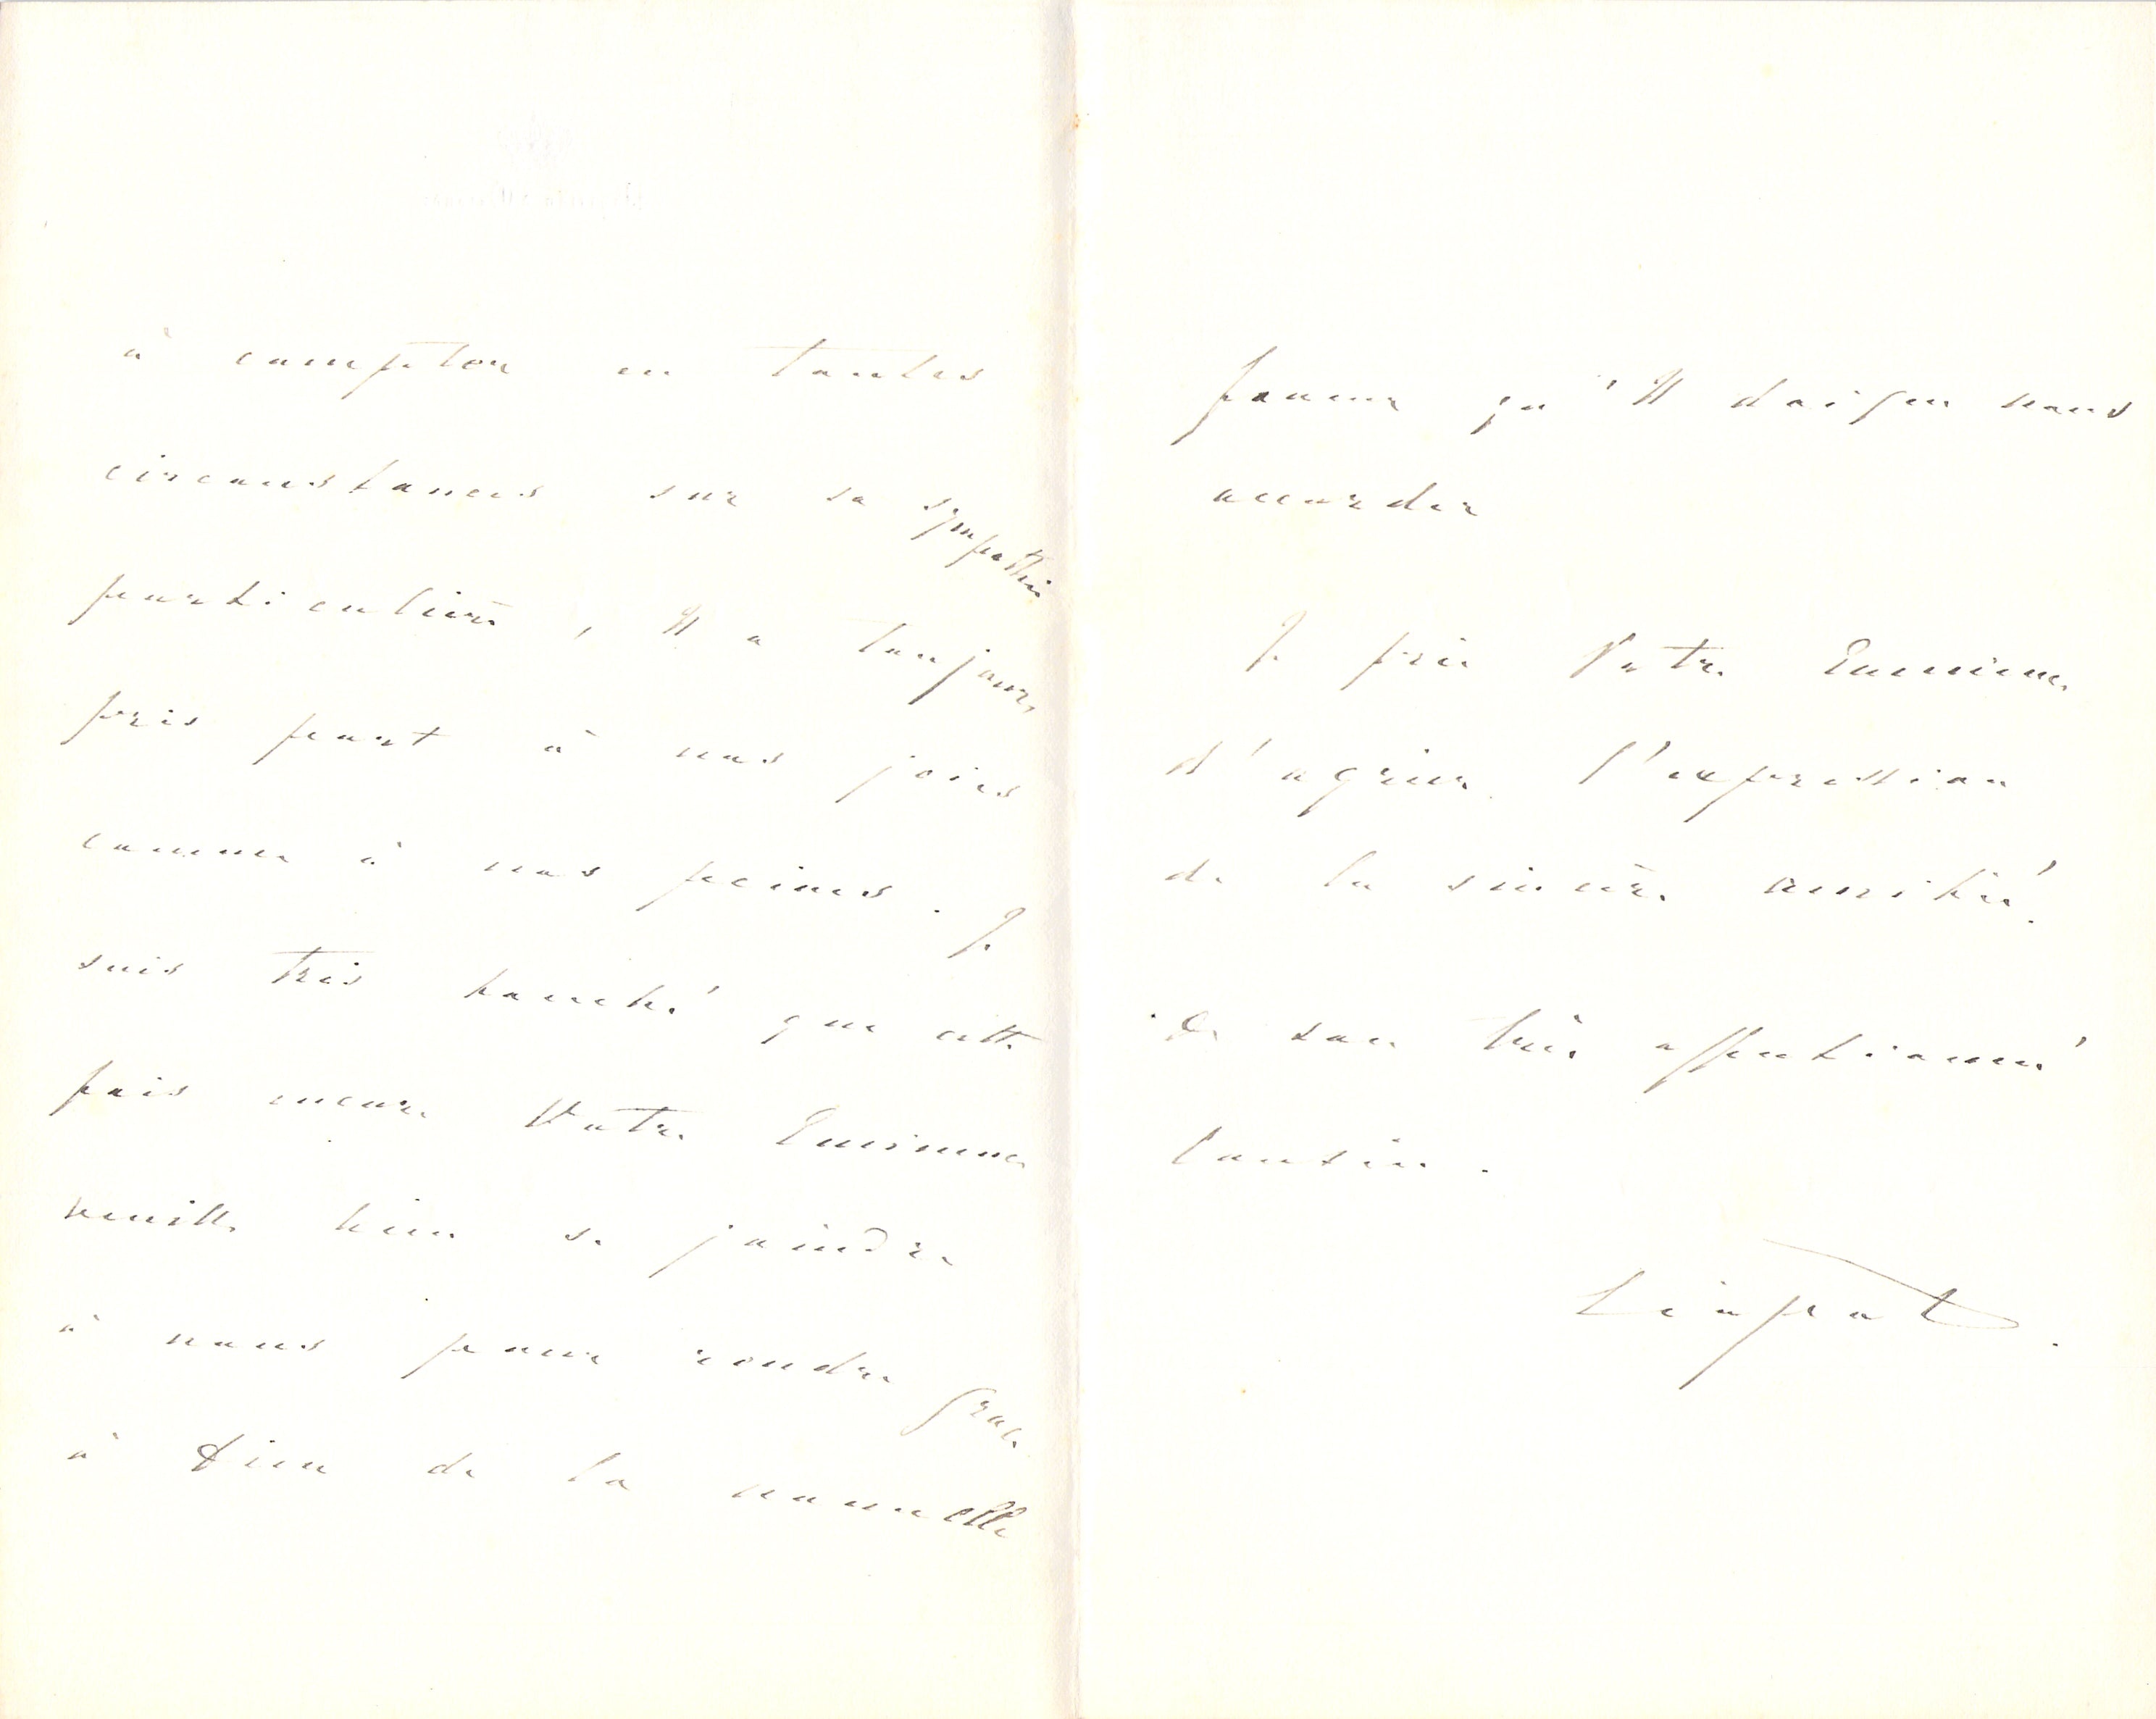 à compter en toutes
circonstances sur sa sympathie
particulière, Il a toujours
pris part à nos joies
comme à nos peines. Je
suis très touché que cette
fois encore Votre Eminence
veuille bien se joindre
à nous pour rendre grace
à Dieu de la nouvelle
faveur qu'Il daigne nous
accorder
Je prie Votre Eminence
d'agréer l'expression
de la sincère amitié
De son très affectionné
Cousin.
Léopold.